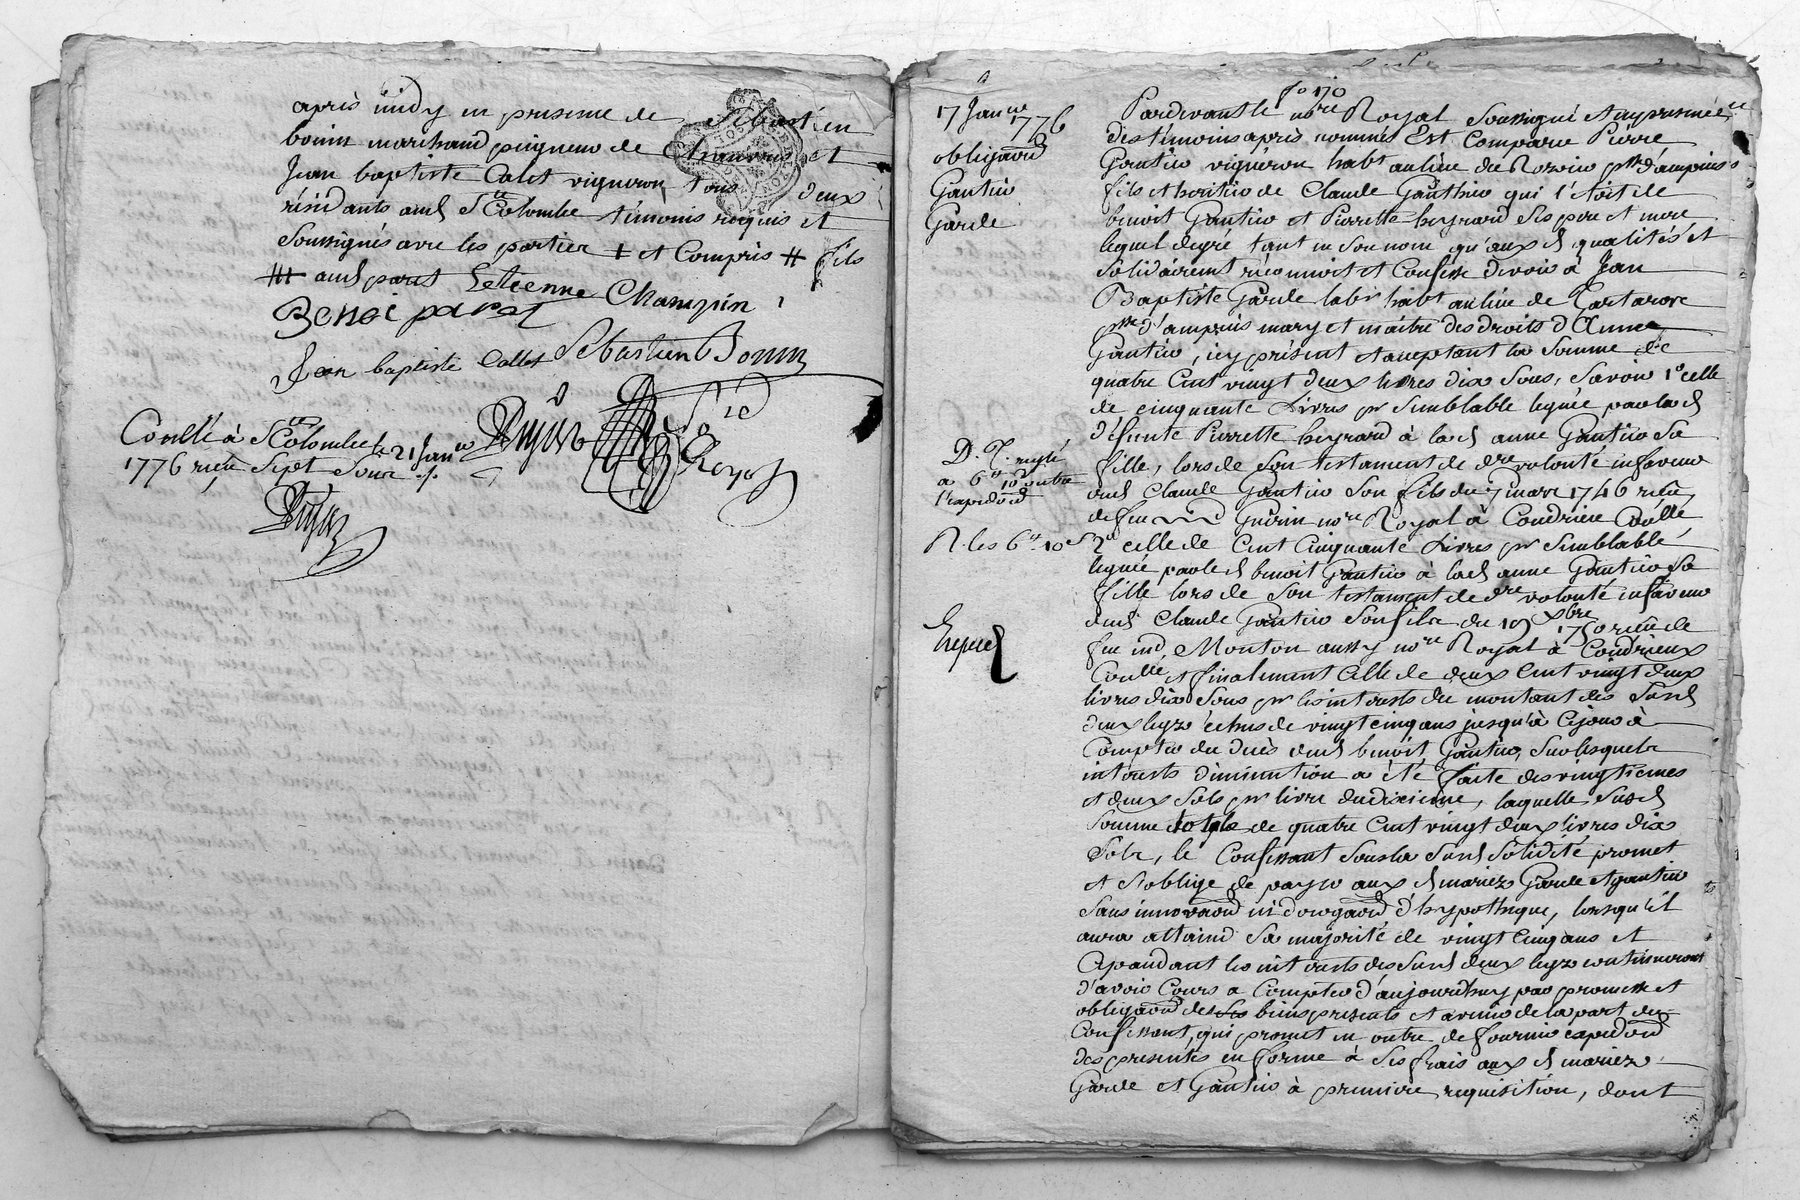 après midy en presence de Sébastien
bonin marchand peigneur de chanvres et
Jean baptiste Calet vigneron tous deux
résidants aud Ste Colombe témoins requis et
soussignés avec les parties + et Compris ++ fils
+++ aud parat Letienne Champin
Benoi parat
Jean baptiste Callet Sébastien Bonin
Conllé à Ste Colombe le 21 Janer
1776 reçu Sept Sous ./.
fo 170
17 Janer 1776
obligaon
Gautier
Garde
Pardevant le nore Royal soussigné et en presence
des témoins après nommés Est Comparu Pierre
Gautier vigneron habt au lieu du Rozoir psse d'ampuis
fils et heritier de Claude Gauthier qui l'étoit de
benoit Gautier et Pierrette heyraud ses pere et mere
lequel de gré tant en son nom qu'aux d qualités et
solidairemt réconnoit et Confesse devoir à Jean
Baptiste Garde labr habt au lieu de Tartaras
psse d'ampuis mary et maitre des droits d'Anne
Gautier, icy présent et acceptant la somme de
quatre Cent vingt deux livres dix sous, savoir 1o celle
de cinquante Livres pr semblable leguée par lad
défunte Pierrette heyraud à lad anne Gautier sa
fille, lors de son testament de dre volonté en faveur
dud Claude Gautier son fils du 7 mars 1746 reçu
de feu Guérin nore Royal à Condrieu Conllé
D. J. reglé
a 6tt 10s outre
l'expedon
R. les 6tt 10s
2o celle de Cent Cinquante Livres pr semblable
leguée par led benoit Gautier à lad anne Gautier sa
fille lors de son testament de dre volonté en faveur
dud Claude Gautier son fils du 19 xbre 1750 reçu de
feu Me Mouton aussy nore Royal à Condrieux
Expéd
Conllé et finalement Celle de deux Cent vingt deux
livres dix sous pr les interests du montant des susd
deux legz échus de vingt cinq ans jusqu'à Cejour à
Compter du decès dud benoit Gautier, sur lesquels
interests diminution a été faite des vingtiemes
et deux sols pr livre du dixieme, laquelle susd
somme totale de quatre Cent vingt deux livres dix
sols, le Confessant sous la susd solidité promet
et s'oblige de payer aux d mariez Garde et gautier
sans innovaon ni dérogaon d'hypotheque, lorsqu'il
aura attaind sa majorité de vingt Cinq ans et
Cependant les interests des susd deux legz continueront
d'avoir Cours a Compter d'aujourd'huy par promesse et
obligaon de ses biens presents et avenir de la part du
Confessant, qui promet en outre de fournir expedon
des presentes en forme à ses frais aux d mariez
Garde et Gautier à premiere requisition, dont